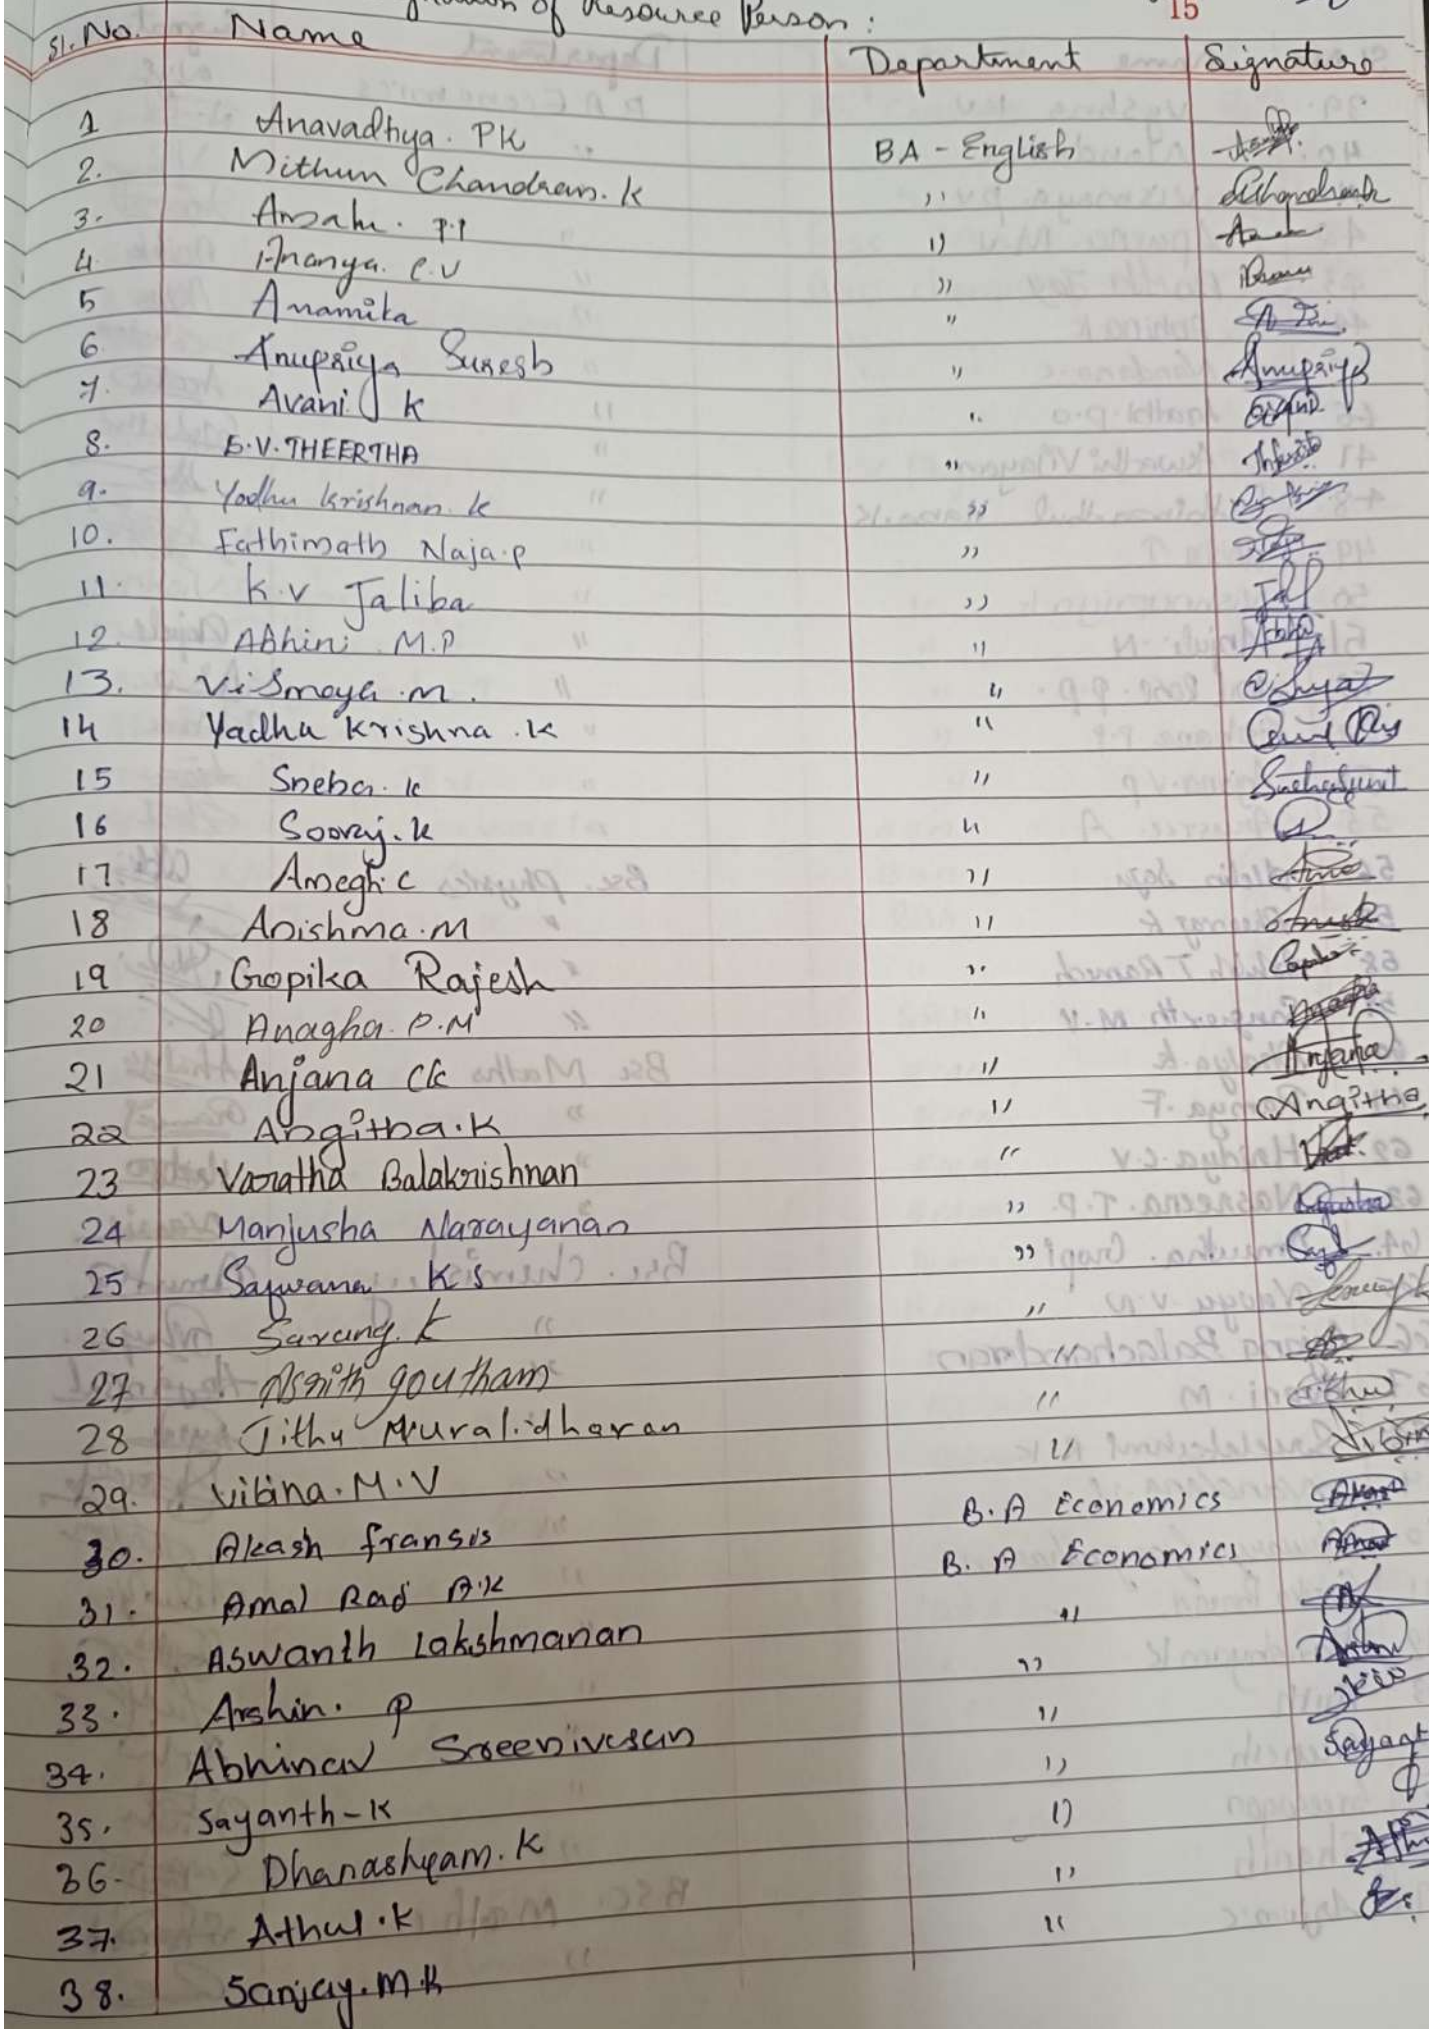 of Resource Person :
15
Sl. No. Name Department Signature
1 Anavadhya. PK BA - English
2. Mithun Chandran. K ,,
3. P.P ,,
4. Ananya. C.V ,,
5 Anamika ,,
6. Anupriya Suresh ,, Anupriya
7. Avani K ,,
8. S.V. THEERTHA ,,
9. Yadhu Krishnan. K ,,
10. Fathimath Naja.P ,,
11. K.V Jaliba ,,
12. Abhini M.P ,,
13. Vismaya.M. ,,
14 Yadhu Krishna.K ,,
15 Sneha. K ,,
16 Sooraj. K ,,
17 Amegh. C ,,
18 Anishma.M ,,
19 Gopika Rajesh ,,
20 Anagha. P.M ,,
21 Anjana CK ,, Anjana
22 Angitha.K ,, Angitha
23 Varatha Balakrishnan ,,
24 Manjusha Narayanan ,,
25 Safwana K S ,,
26 Sarang. K ,,
27 goutham ,,
28 Jithu Muralidharan ,,
29. Vibina.M.V ,,
30. Akash fransis B.A Economics
31. Amal Raj A.K B.A Economics
32. Aswanth Lakshmanan ,,
33. Arshin. P ,,
34. Abhinav Sreenivasan ,,
35. Sayanth-K ,, Sayant
36. Dhanashyam. K ,,
37. Athul.K ,,
38. Sanjay.M.K ,,